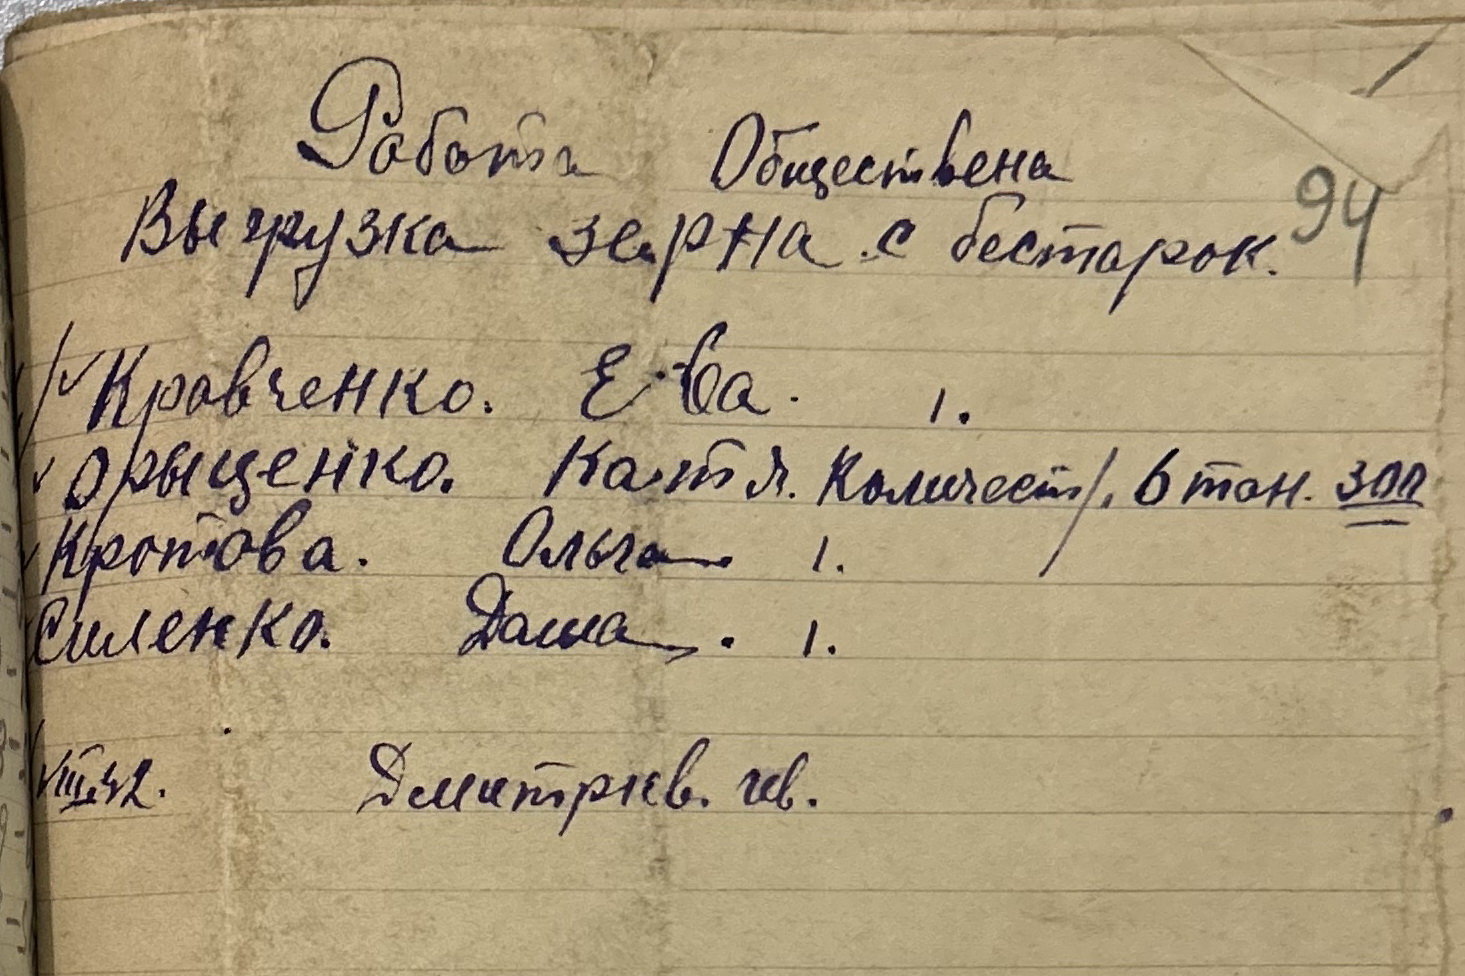 Работа Обществена
Выгрузка зерна с бестарок.
94
Кравченко. Ева. 1.
Орыщенко. Катя. Количест/. 6 тон. 300
Кротова. Ольга. 1.
Силенко. Даша. 1.
VIII 42. Дмитриев.